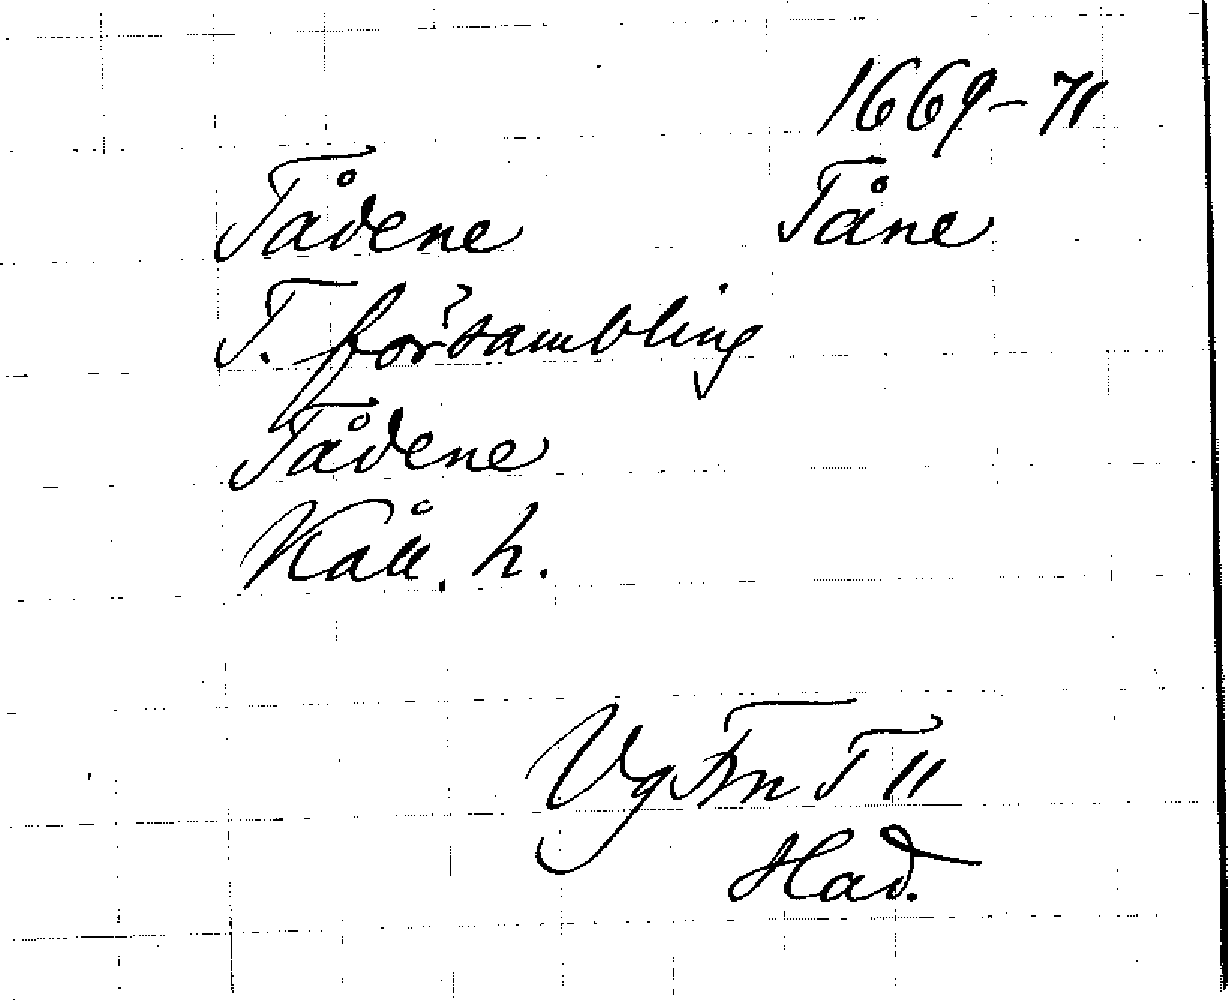 1669-71
Tådene Tåne
T. försambling
Tådene
Kåll. h.
Vg Fn T 11
Had.